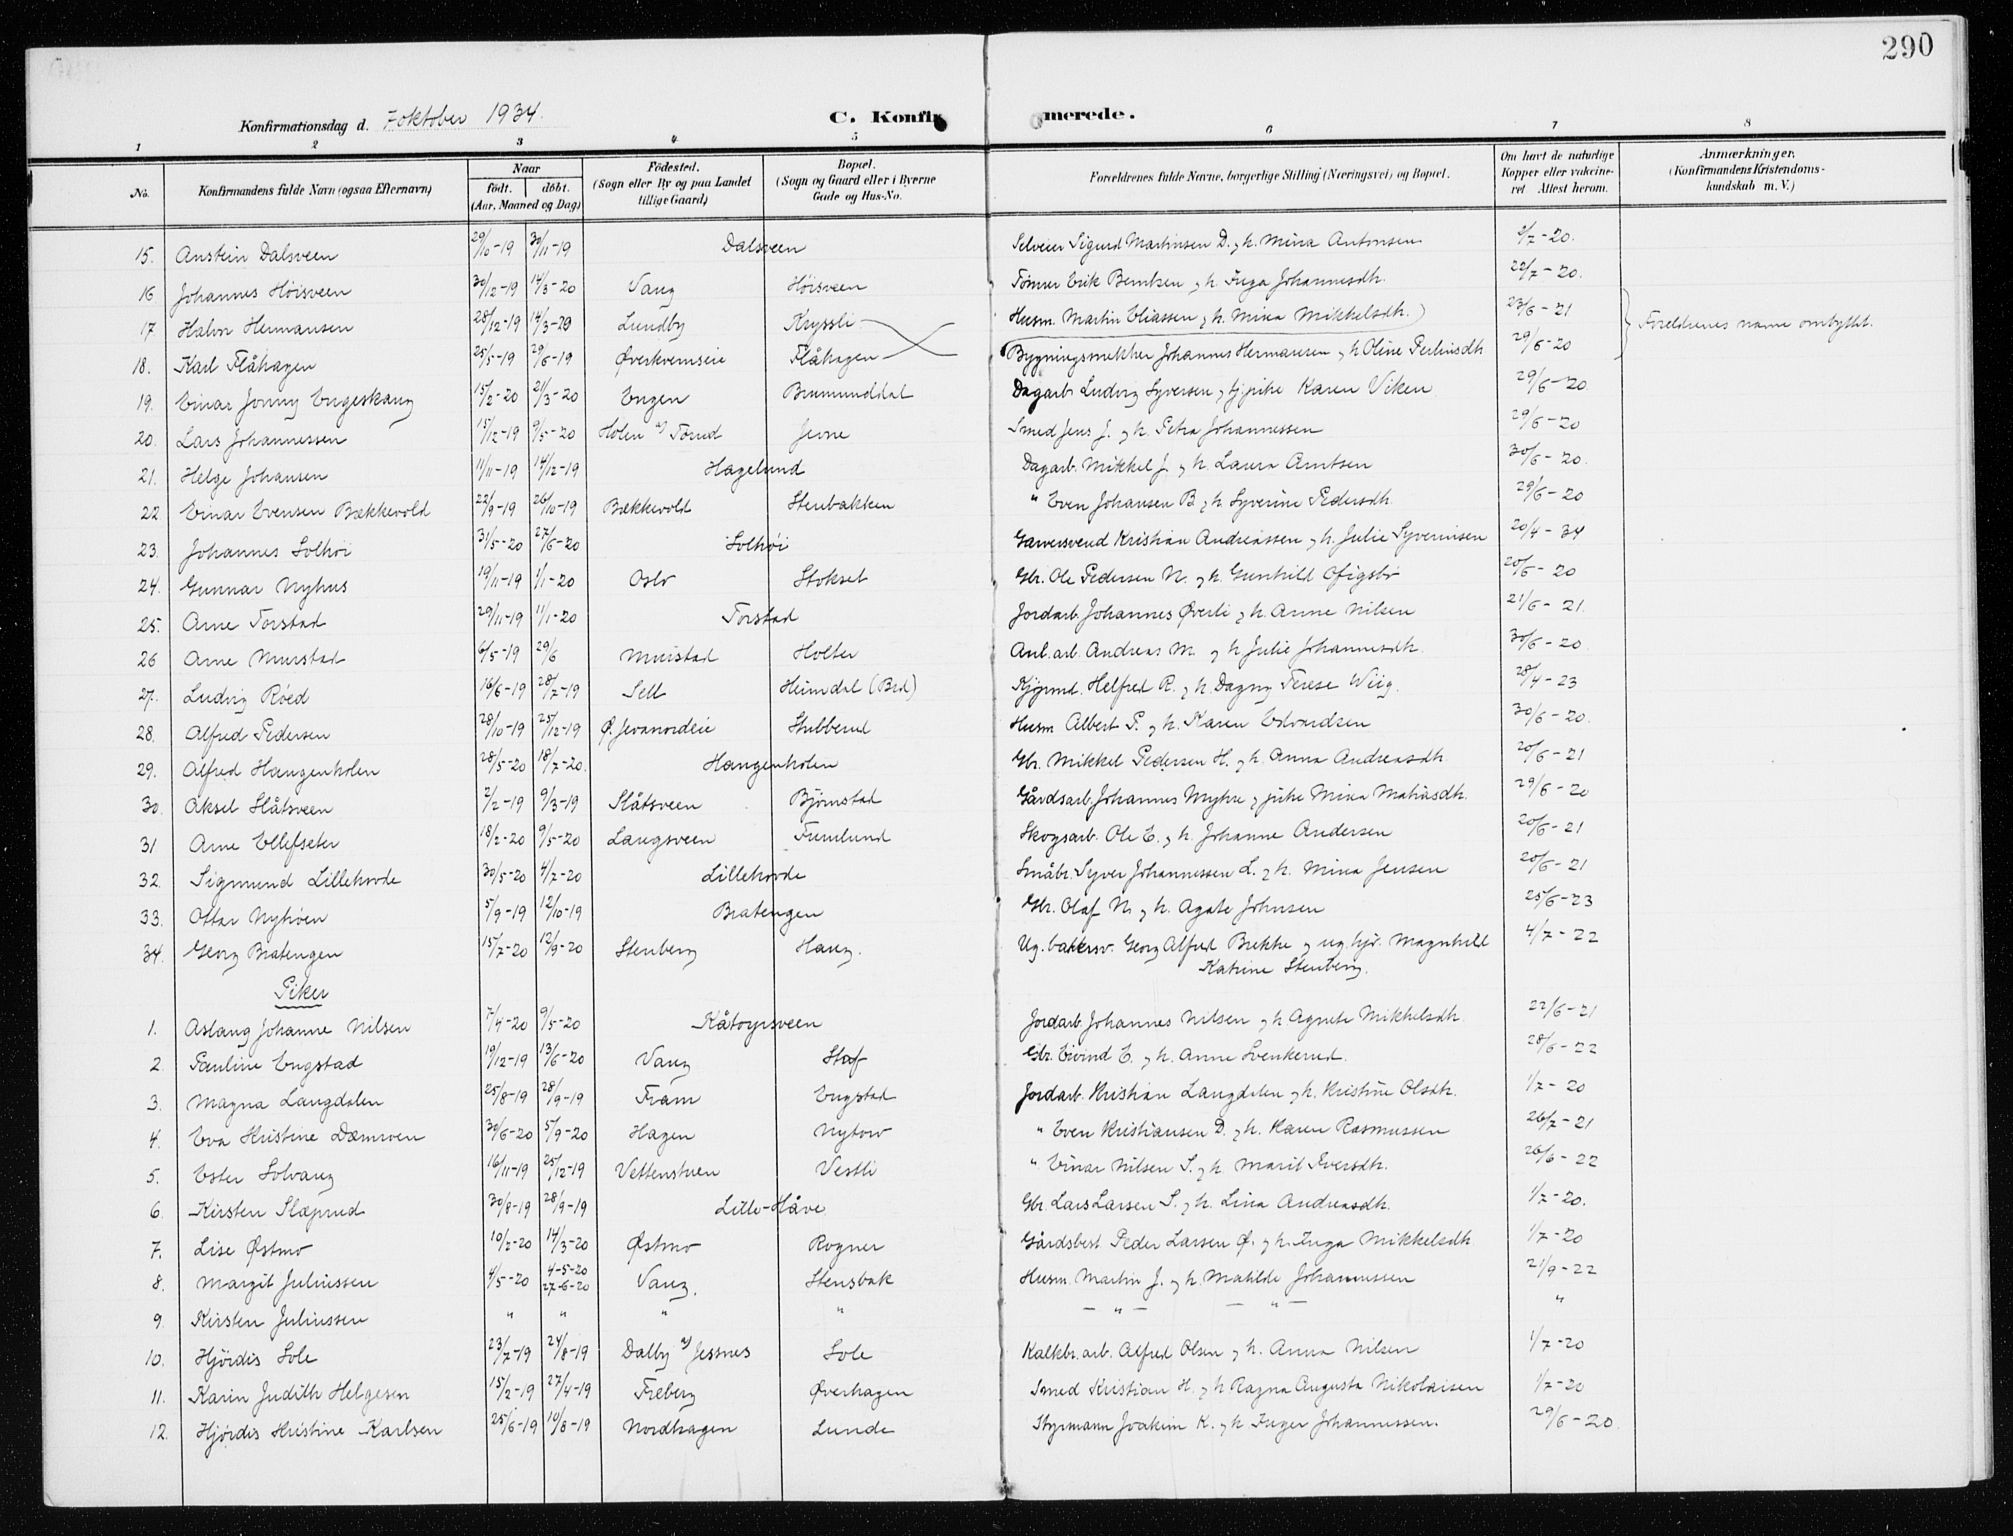 290
Konfirmationsdag d. 7 oktober 1934. C. Konfirmerede.
1 2 3 4 5 6 7 8
No. Konfirmandens fulde Navn (ogsaa Efternavn) Naar født. døbt. (Aar, Maaned og Dag) Fødested. (Sogn eller By og paa Landet tillige Gaard) Bopæl. (Sogn og Gaard eller i Byerne Gade og Hus-No. Forældrenes fulde Navne, borgerlige Stilling (Næringsvei) og Bopæl. Om havt de naturlige Kopper eller vakcineret Attest herom. Anmærkninger. (Konfirmandens Kristendomskundskab m. V.)
15. Anstein Dalsveen 29/10-19 30/11-19 Dalsveen Selveier Sigurd Martinsen D. og h. Mina Antonsen 1/7-20.
16 Johannes Høisveen 30/12-19 14/3-20 Vang Høisveen Tømmer Erik Berntsen og h. Inga Johannesdh. 22/7-20.
17 Halvor Hermansen 28/12-19 14/3-20 Lundby Kryssli Husm. Martin Eliassen og h. Mina Mikkelsdh. 23/6-21 Foreldrenes navne ombyttet.
18. Karl Flåhagen 25/5-19 29/6-19 Øverkvernseie Flåhagen Bygningssnekker Johannes Hermansen og h Oline Perlinsdh 29/6-20
19. Einar Jonny Engeskaug 15/2-20 21/3-20 Engen Brumunddal Dagarb. Ludvig Syversen og tj.pike Karen Viken 29/6-20
20. Lars Johannessen 15/12-19 9/5-20 Holen u/ Torud Jevne Smed Jens J. og h. Petra Johannessen 29/6-20
21. Helge Johansen 11/11-19 14/12-19 Hagelund Dagarb. Mikkel J. og h. Laura Arntsen 30/6-20.
22 Einar Evensen Bækkevold 22/9-19 26/10-19 Bækkevold Stenbakken " Even Johansen B og h Syverine Pedersdh. 29/6-20
23. Johannes Solhøi 31/5-20 27/6-20 Solhøi Garversvend Kristian Andreassen og h. Julie Syverinsen 20/4-34
24. Gunnar Nyhus 19/11-19 1/1-20 Oslo Stokset Gbr. Ole Pedersen N. og h. Gunhild Ofigsbø 20/6-20
25. Arne Torstad 29/11-19 11/1-20 Torstad Jordarb. Johannes Øverli og h. Anne Nilsen 21/6-21.
26 Arne Murstad 6/5-19 29/6 Muristad Holter Anl. arb. Andreas M. og h Julie Johannesdh. 30/6-20.
27. Ludvig Røed 16/6-19 28/7-19 Sell Heimdal (Brd) Kjøpmd. Helfred R. og h. Dagny Terese Wiig. 28/4-23
28. Alfred Pedersen 28/10-19 25/12-19 Ø. Jevanordeie Stubberud Husm Albert P. og h. Karen Edvardsen 30/6-20.
29. Alfred Haugenholen 28/5-20 18/7-20. Haugenholen Gbr. Mikkel Pedersen H. og h. Anna Andreasdh 20/6-21
30. Aksel Slåtsveen 2/2-19 9/3-19 Slåtsveen Bjørnstad Gårdsarb. Johannes Myhre og pike Mina Matiasdh. 29/6-20
31 Arne Ellefseter 18/2-20 9/5-20 Langsveen Furulund Skogsarb. Ole E. og h. Johanne Andersen 20/6-21
32. Sigmund Lillehovde 30/5-20 4/7-20 Lillehovde Småbr. Syver Johannessen L. og h. Mina Jensen 20/6-21
33. Ottar Nyhøen 5/9-19 12/10-19 Bratengen Gbr. Olaf N. og h. Agate Johnsen 25/6-23
34. Georg Bratengen 15/7-20 12/9-20 Stenberg Haug. Ug. bakersv. Georg Alfred Brekke og ug. tjp. Magnhild Katrine Stenberg. 4/7-22
Piker
1. Aslaug Johanne Nilsen 7/4-20 9/5-20 Kåtorpsveen Jordarb. Johannes Nilsen og h Agnete Mikkelsdh. 22/6-21
2. Pauline Engstad 19/12-19 13/6-20 Vang Staf Gbr. Eivind E. og h. Anne Svenkerud. 28/6-22
3. Magna Langdalen 25/8-19 28/9-19 Fram Engstad Jordarb. Kristian Langdalen og h. Kristine Olsdh. 1/7-20
4. Eva Kristine Dæmroen 30/6-20 5/9-20 Hagen Nytrov " Even Kristiansen D. og h. Karen Rasmussen 26/7-21
5. Ester Solvang 16/11-19 25/12-19 Vettenstuen Vestli " Einar Nilsen S. og h Marit Iversdh. 26/6-22
6. Kirsten Slæprud 30/8-19 28/9-19 Lille-Håve Gbr. Lars Larsen S. og h. Lina Andreasdh. 1/7-20.
7. Lise Østmo 10/2-20 14/3-20 Østmo Rogner Gårdsbest. Peder Larsen Ø. og h. Inga Mikkelsdh 1/7-20
8. Margit Juliussen 4/5-20 4-5-20 27-6-20 Vang. Stensbak Husm. Martin J. og h. Matilde Johannessen 21/9-22
9. Kirsten Juliussen " " " " — " — — " — "
10. Hjördis Sole 23/7-19 24/8-19 Dalby u/ Jessnes Sole Kalkbr. arb. Alfred Olsen og h. Anna Nilsen 1/7-20
11. Karin Judith Helgesen 15/2-19 27/4-19 Freberg Øverhagen Smed Kristian H. og h Ragna Augusta Nikolaisen 1/7-20
12. Hjørdis Kristine Karlsen 25/6-19 10/8-19 Nordhagen Lunde Styrmann Joakim K. og h Inger Johannessen. 29/6-20.